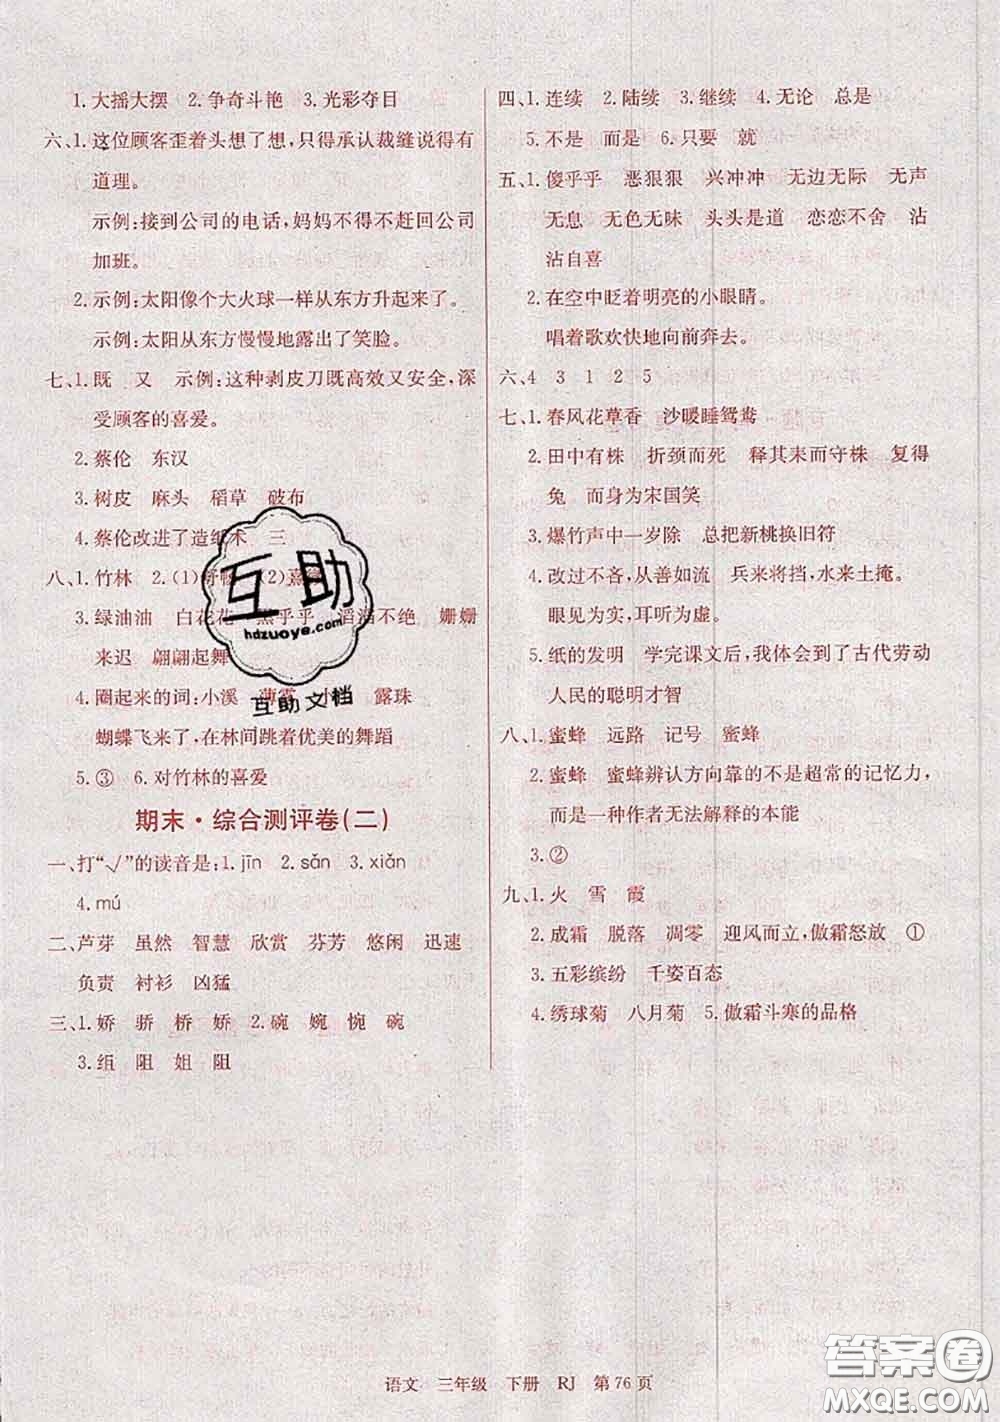 1.大摇大摆 2.争奇斗艳 3.光彩夺目
六、1.这位顾客歪着头想了想,只得承认裁缝说得有
道理。
示例:接到公司的电话,妈妈不得不赶回公司
加班。
2.示例:太阳像个大火球一样从东方升起来了。
示例:太阳从东方慢慢地露出了笑脸。
七、1.既 又 示例:这种剥皮刀既高效又安全,深
受顾客的喜爱。
2.蔡伦 东汉
3.树皮 麻头 稻草 破布
4.蔡伦改进了造纸术 三
八、1.竹林 2.(1) (2)
3.绿油油 白花花 蒸乎乎 滔滔不绝 姗姗
来迟 翩翩起舞
4.圈起来的词:小溪 薄雾 小 露珠
蝴蝶飞来了,在林间跳着优美的舞蹈
5.③ 6.对竹林的喜爱
期末·综合测评卷(二)
一、打“√”的读音是:1.jīn 2.sǎn 3.xiǎn
4.mú
二、芦芽 虽然 智慧 欣赏 芬芳 悠闲 迅速
负责 衬衫 凶猛
三、1.娇 骄 桥 娇 2.碗 婉 惋 碗
3.组 阻 姐 阻
四、1.连续 2.陆续 3.继续 4.无论 总是
5.不是 而是 6.只要 就
五、1.傻乎乎 恶狠狠 兴冲冲 无边无际 无声
无息 无色无味 头头是道 恋恋不舍 沾
沾自喜
2.在空中眨着明亮的小眼睛。
唱着歌欢快地向前奔去。
六、4 3 1 2 5
七、1.春风花草香 沙暖睡鸳鸯
2.田中有株 折颈而死 释其耒而守株 复得
兔 而身为宋国笑
3.爆竹声中一岁除 总把新桃换旧符
4.改过不吝,从善如流 兵来将挡,水来土掩。
眼见为实,耳听为虚。
5.纸的发明 学完课文后,我体会到了古代劳动
人民的聪明才智
八、1.蜜蜂 远路 记号 蜜蜂
2.蜜蜂 蜜蜂辨认方向靠的不是超常的记忆力,
而是一种作者无法解释的本能
3.②
九、1.火 雪 霞
2.成霜 脱落 凋零 迎风而立,傲霜怒放 ①
3.五彩缤纷 千姿百态
4.绣球菊 八月菊 5.傲霜斗寒的品格
互助
hdzuoye.com
互助文档
语文 三年级 下册 RJ 第76页
答案圈
MXQE.COM